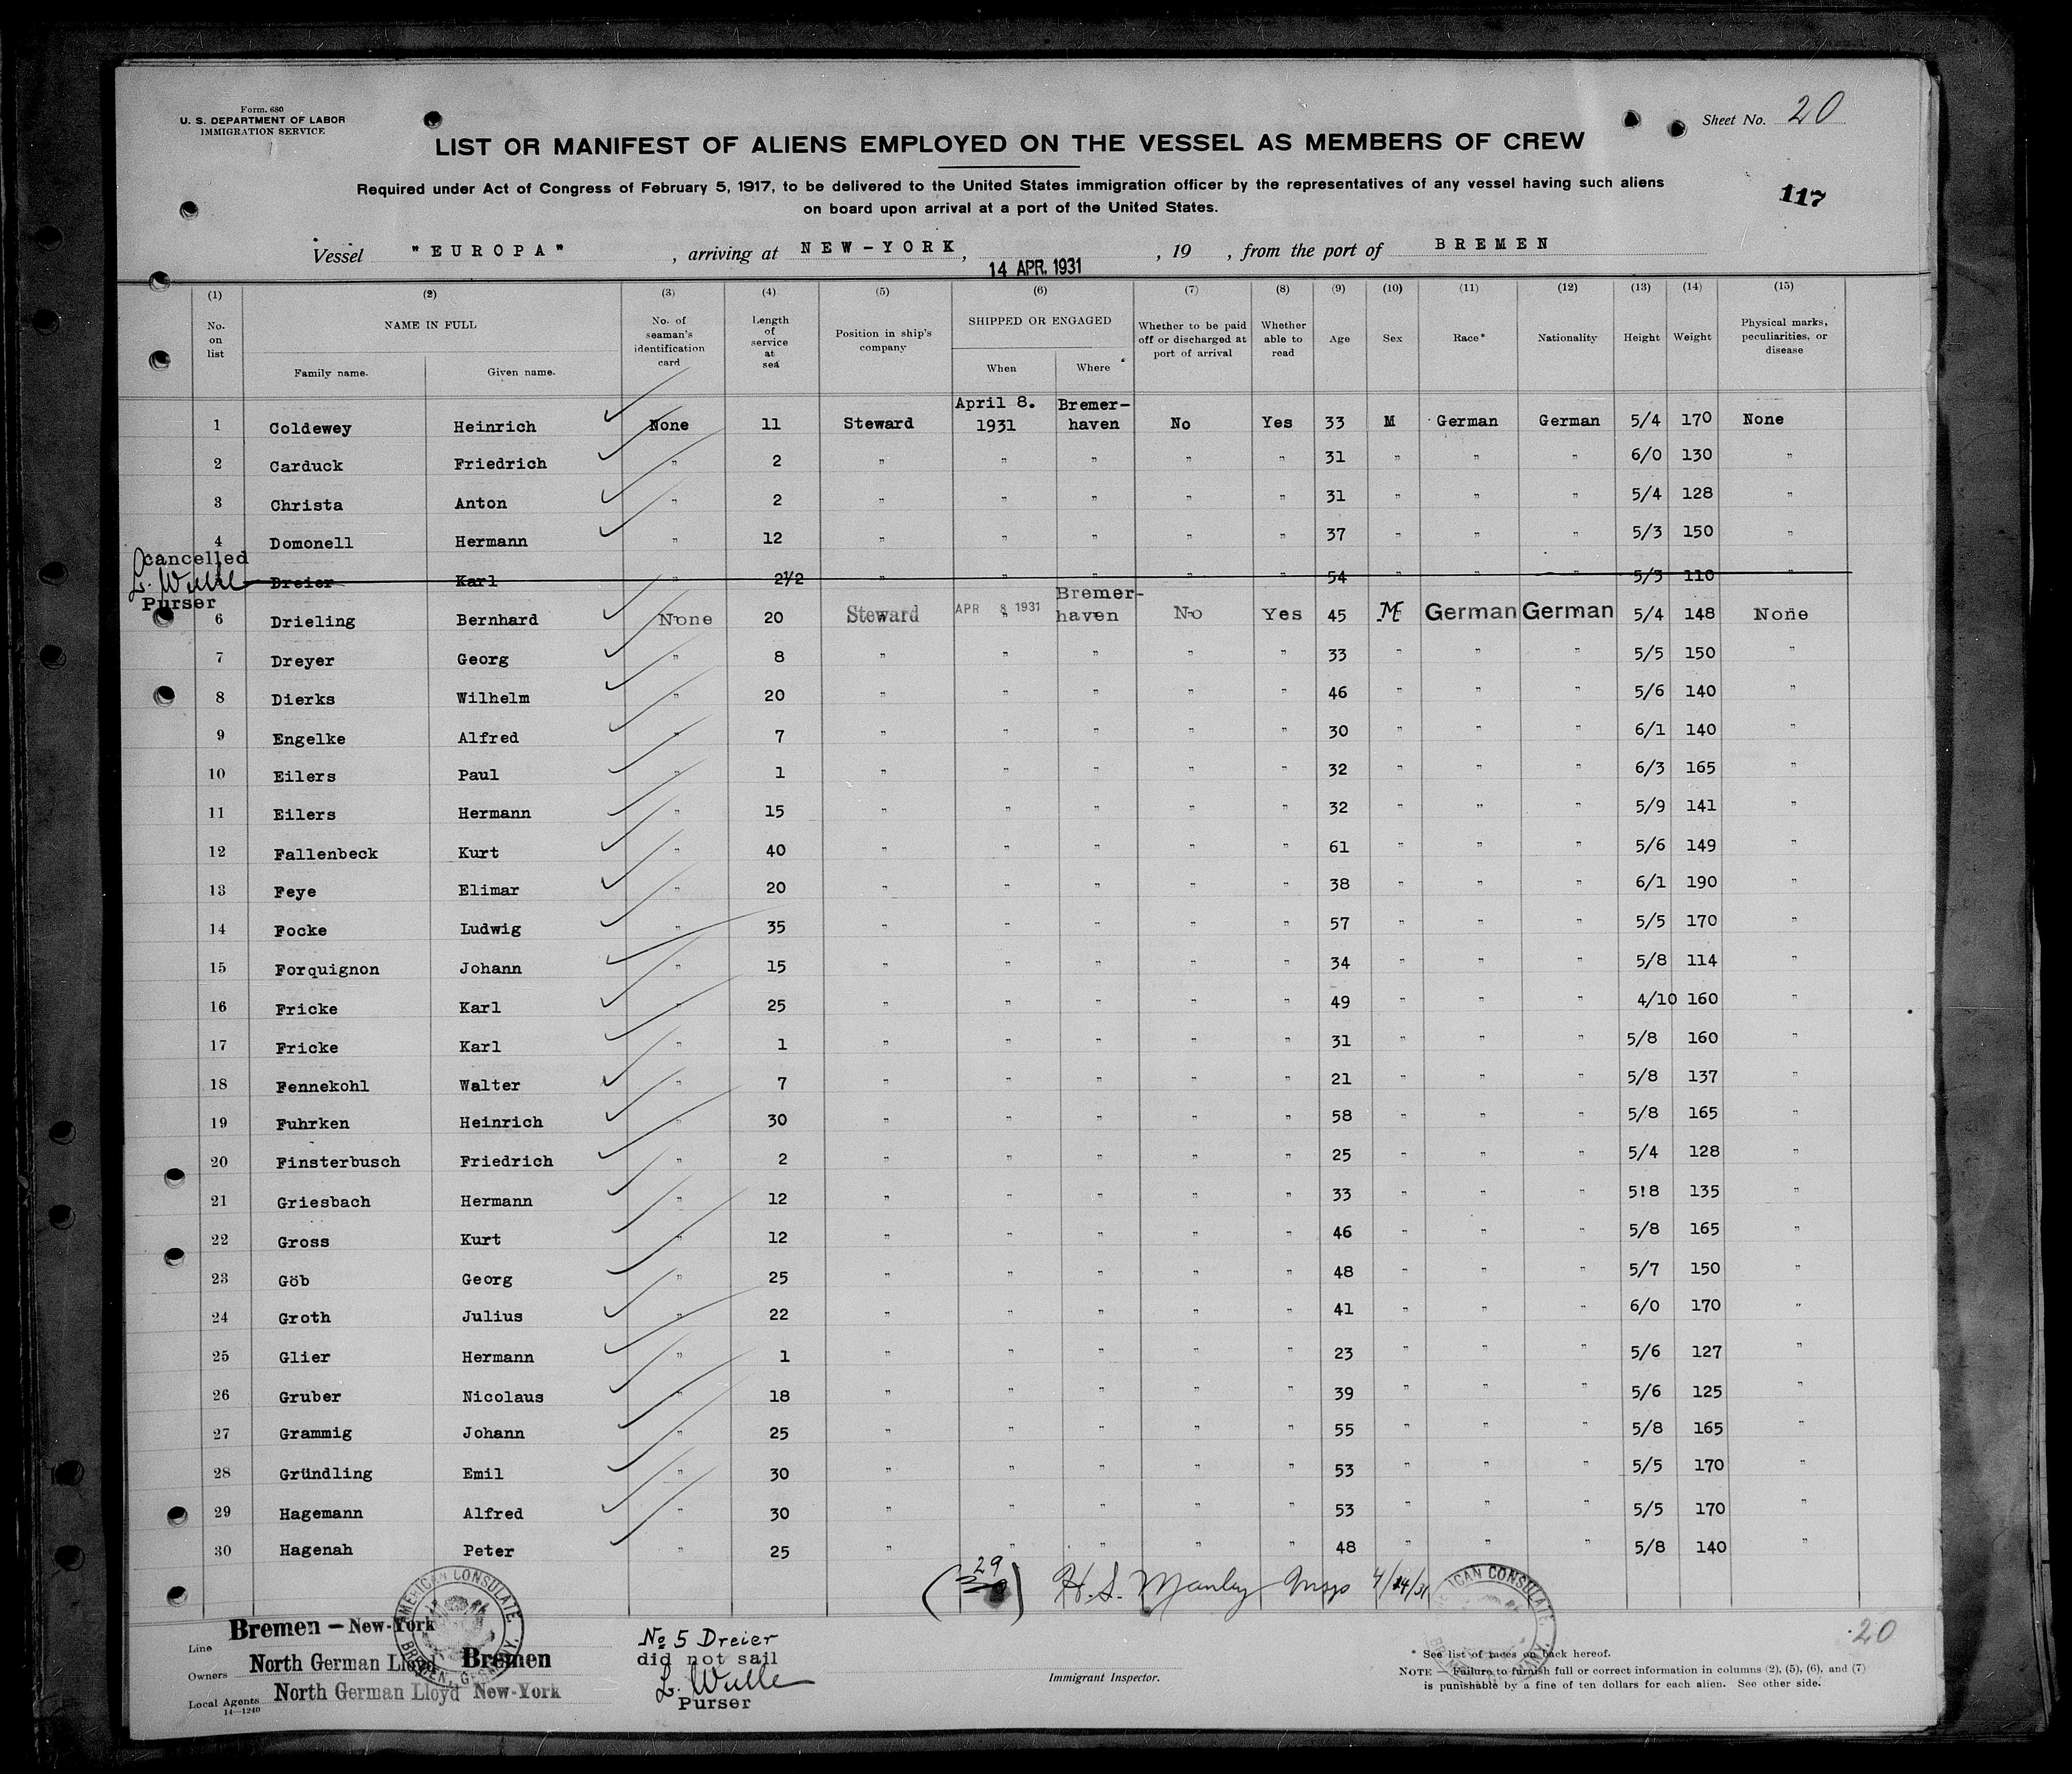 Form. 680
U. S. DEPARTMENT OF LABOR
IMMIGRATION SERVICE
Sheet No. 20
LIST OR MANIFEST OF ALIENS EMPLOYED ON THE VESSEL AS MEMBERS OF CREW
Required under Act of Congress of February 5, 1917, to be delivered to the United States immigration officer by the representatives of any vessel having such aliens
on board upon arrival at a port of the United States.
117
Vessel "EUROPA" , arriving at NEW-YORK, 14 APR. 1931 , 19 , from the port of BREMEN
(1) (2) (3) (4) (5) (6) (7) (8) (9) (10) (11) (12) (13) (14) (15)
No. on list NAME IN FULL Family name. Given name. No. of seaman's identification card Length of service at sea Position in ship's company SHIPPED OR ENGAGED When Where Whether to be paid off or discharged at port of arrival Whether able to read Age Sex Race* Nationality Height Weight Physical marks, peculiarities, or disease
1 Coldewey Heinrich None 11 Steward April 8. 1931 Bremer-haven No Yes 33 M German German 5/4 170 None
2 Carduck Friedrich " 2 " " " " " 31 " " " 6/0 130 "
3 Christa Anton " 2 " " " " " 31 " " " 5/4 128 "
4 Domonell Hermann " 12 " " " " " 37 " " " 5/3 150 "
cancelled
L. Wulle
Purser
Dreier Karl " 2½ " " " " " 54 " " " 5/3 110 "
6 Drieling Bernhard None 20 Steward APR 8 1931 Bremer-haven No Yes 45 M German German 5/4 148 None
7 Dreyer Georg " 8 " " " " " 33 " " " 5/5 150 "
8 Dierks Wilhelm " 20 " " " " " 46 " " " 5/6 140 "
9 Engelke Alfred " 7 " " " " " 30 " " " 6/1 140 "
10 Eilers Paul " 1 " " " " " 32 " " " 6/3 165 "
11 Eilers Hermann " 15 " " " " " 32 " " " 5/9 141 "
12 Fallenbeck Kurt " 40 " " " " " 61 " " " 5/6 149 "
13 Feye Elimar " 20 " " " " " 38 " " " 6/1 190 "
14 Focke Ludwig " 35 " " " " " 57 " " " 5/5 170 "
15 Forquignon Johann " 15 " " " " " 34 " " " 5/8 114 "
16 Fricke Karl " 25 " " " " " 49 " " " 4/10 160 "
17 Fricke Karl " 1 " " " " " 31 " " " 5/8 160 "
18 Fennekohl Walter " 7 " " " " " 21 " " " 5/8 137 "
19 Fuhrken Heinrich " 30 " " " " " 58 " " " 5/8 165 "
20 Finsterbusch Friedrich " 2 " " " " " 25 " " " 5/4 128 "
21 Griesbach Hermann " 12 " " " " " 33 " " " 5!8 135 "
22 Gross Kurt " 12 " " " " " 46 " " " 5/8 165 "
23 Göb Georg " 25 " " " " " 48 " " " 5/7 150 "
24 Groth Julius " 22 " " " " " 41 " " " 6/0 170 "
25 Glier Hermann " 1 " " " " " 23 " " " 5/6 127 "
26 Gruber Nicolaus " 18 " " " " " 39 " " " 5/6 125 "
27 Grammig Johann " 25 " " " " " 55 " " " 5/8 165 "
28 Gründling Emil " 30 " " " " " 53 " " " 5/5 170 "
29 Hagemann Alfred " 30 " " " " " 53 " " " 5/5 170 "
30 Hagenah Peter " 25 " " " " " 48 " " " 5/8 140 "
(29) H. S. Manley Insp 4/14/31
AMERICAN CONSULATE BREMEN, GERMANY.
AMERICAN CONSULATE
Line Bremen – New-York
Owners North German Lloyd Bremen
Local Agents North German Lloyd New-York
14—1240
No 5 Dreier
did not sail
L. Wulle
Purser
Immigrant Inspector.
20
* See list of races on back hereof.
NOTE.—Failure to furnish full or correct information in columns (2), (5), (6), and (7)
is punishable by a fine of ten dollars for each alien. See other side.